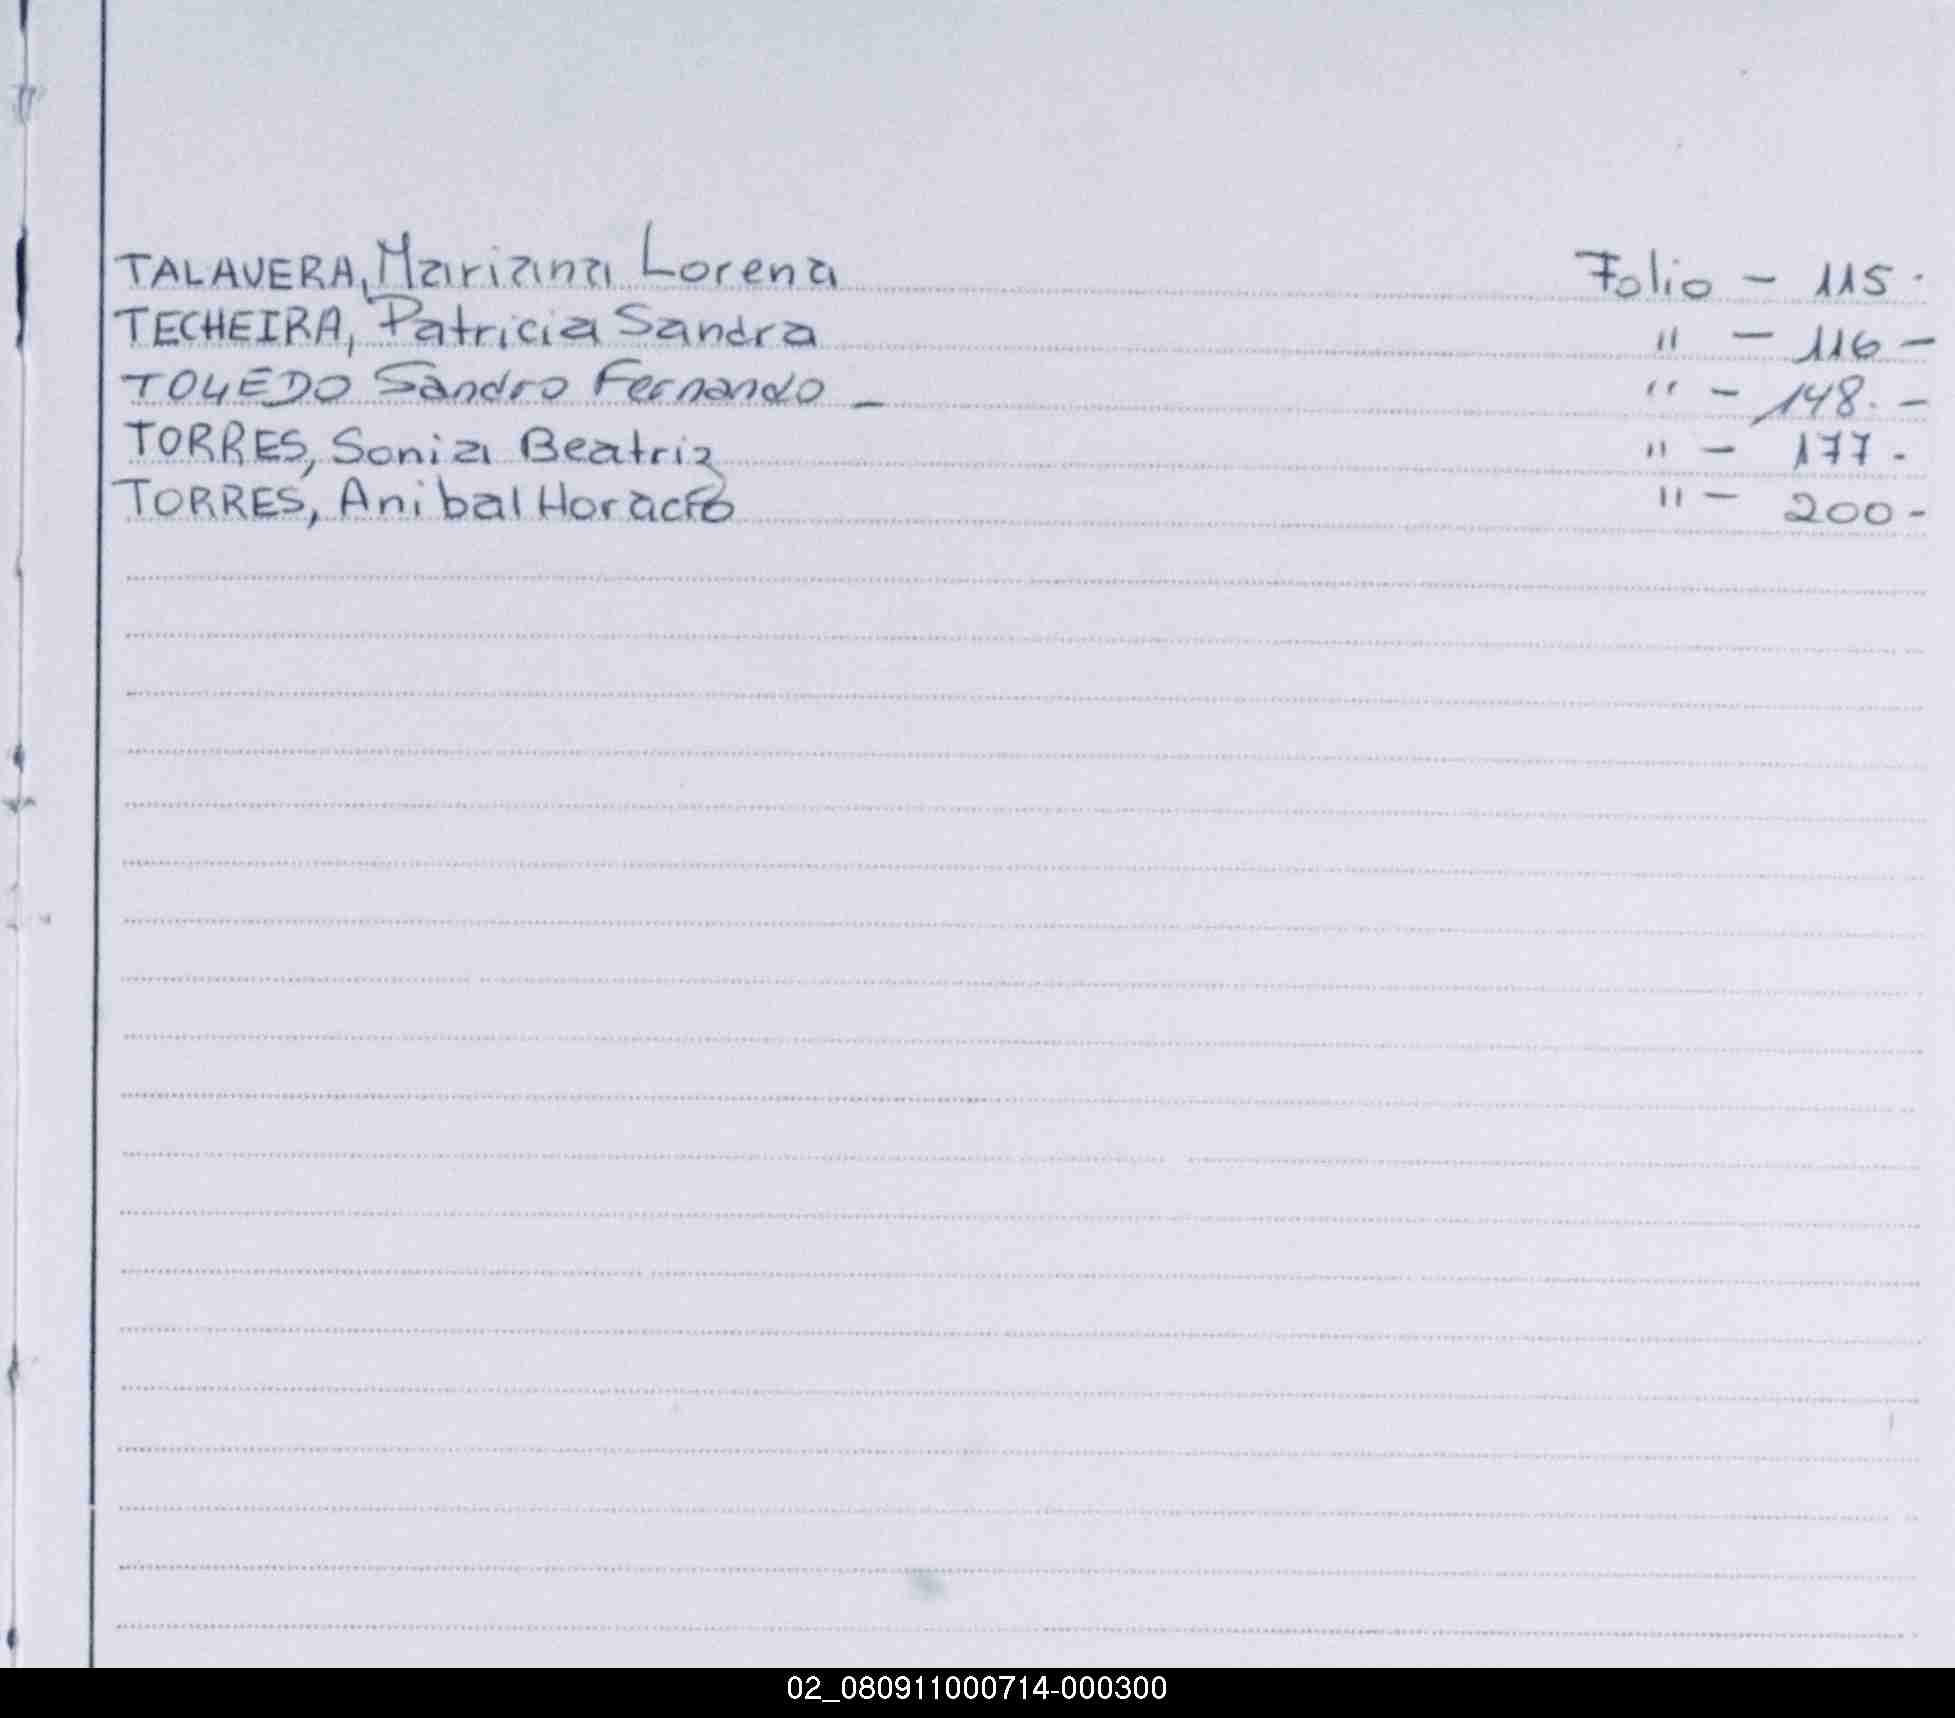 TALAVERA, Mariana Lorena Folio - 115.
TECHEIRA, Patricia Sandra " - 116 -
TOLEDO Sandro Fernando _ " - 148. -
TORRES, Sonia Beatriz " - 177.
TORRES, Anibal Horacio " - 200 -
02_080911000714-000300